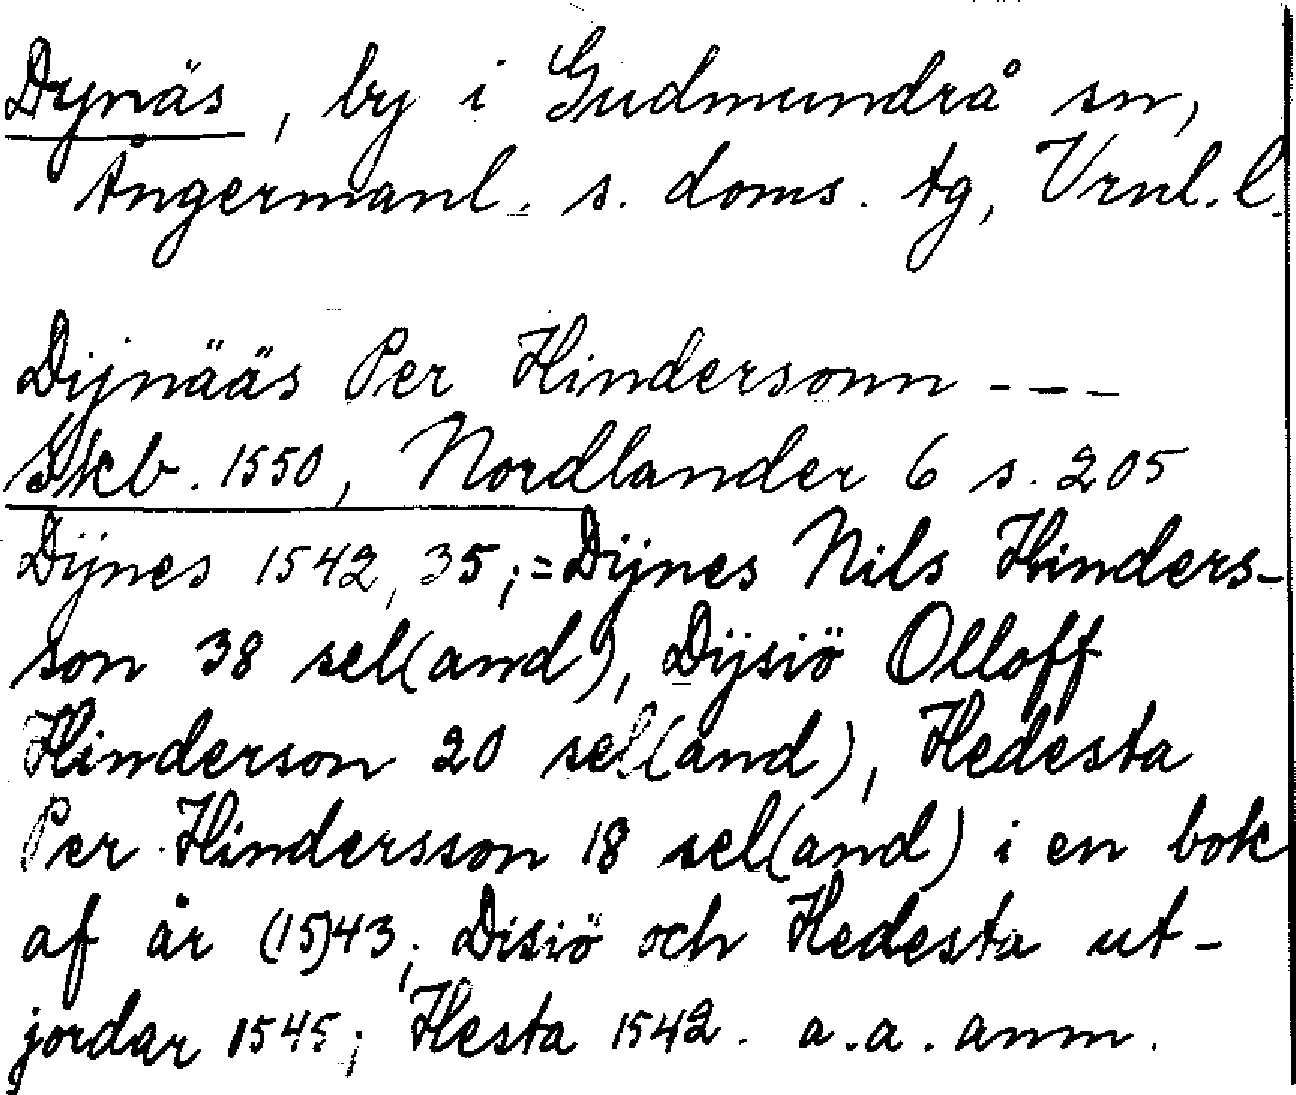 Dynäs, by i Gudmundrå sn,
Ångermanl. s. doms. tg, Vrnl. l.
Dijnääs Per Hindersonn ---
Skb. 1550, Nordlander 6 s. 205
Dÿnes 1542, 35; = Dÿnes Nils Hinders-
son 38 sel(and), Dÿsiö Olloff
Hinderson 20 sel(and), Hedesta
Per Hindersson 18 sel(and) i en bok
af år (15)43; Disiö och Hedesta ut-
jordar 1545; Hesta 1542. a.a. anm.